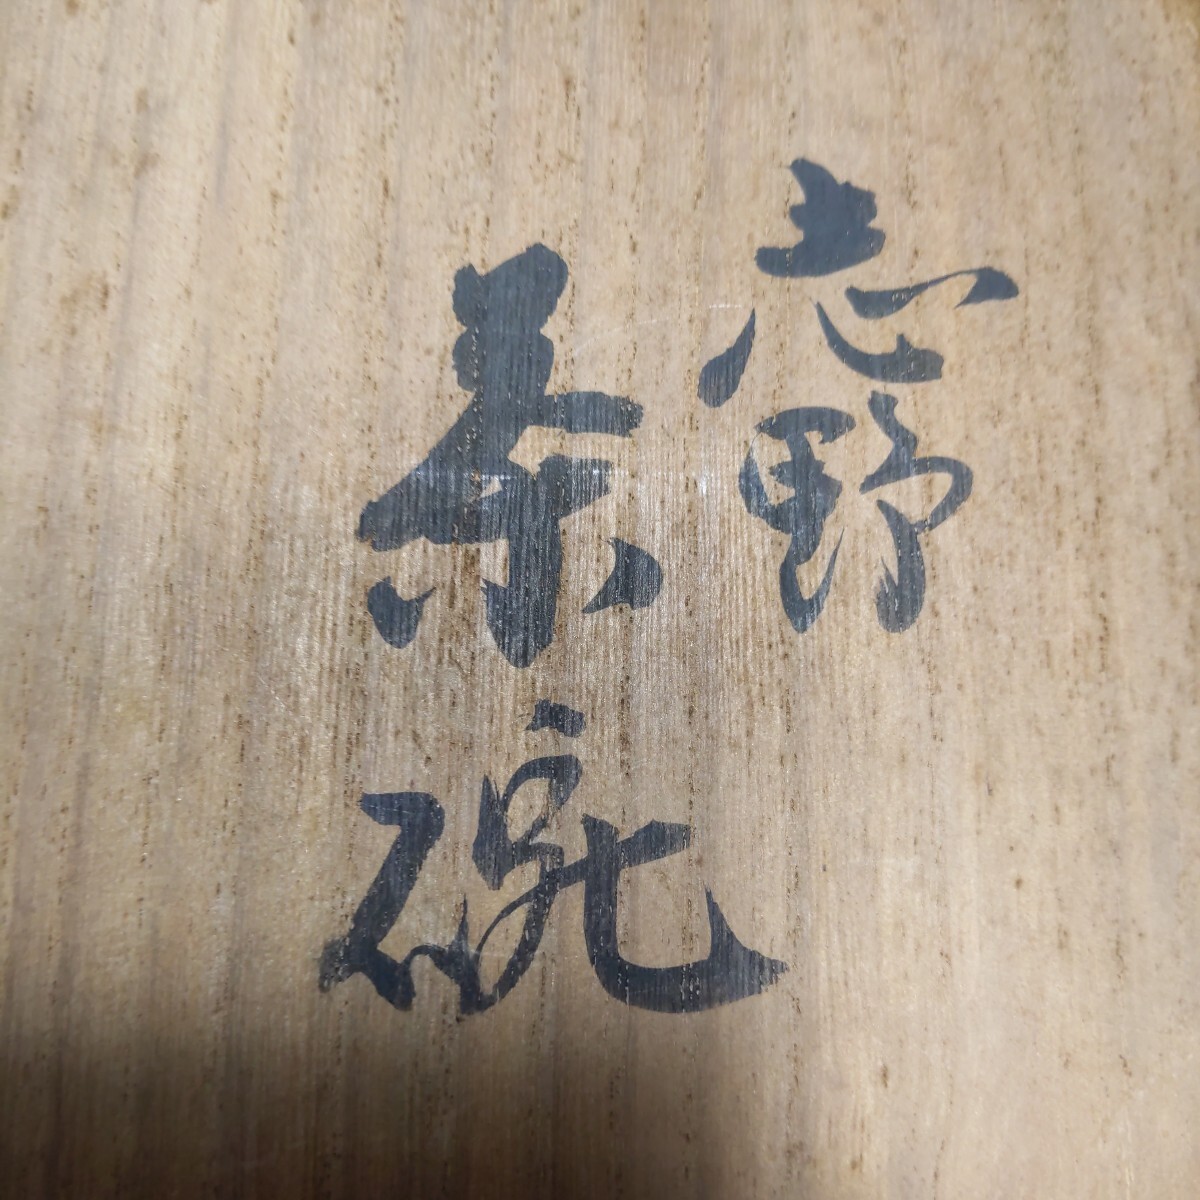 志野
茶碗